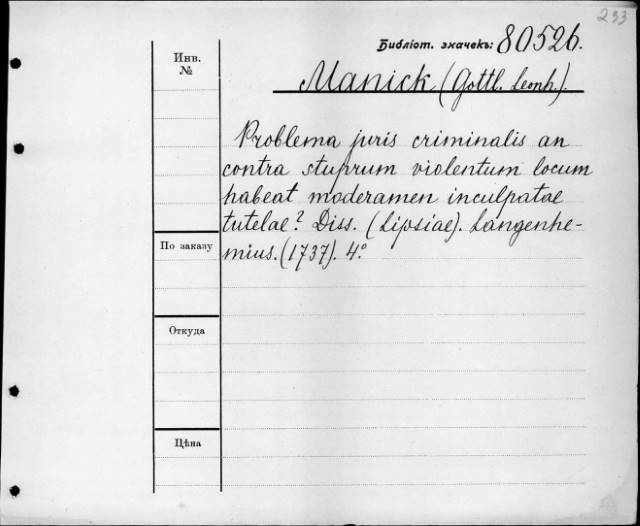 233
Библіот. значекъ: 80526.
Инв.
№
Manick (Gottl. Leonh.).
Problema juris criminalis an
contra stuprum violentum locum
habeat moderamen inculpatae
tutelae? Diss. (Lipsiae). Langenhe-
mius. (1737). 4º.
По заказу
Откуда
Цѣна